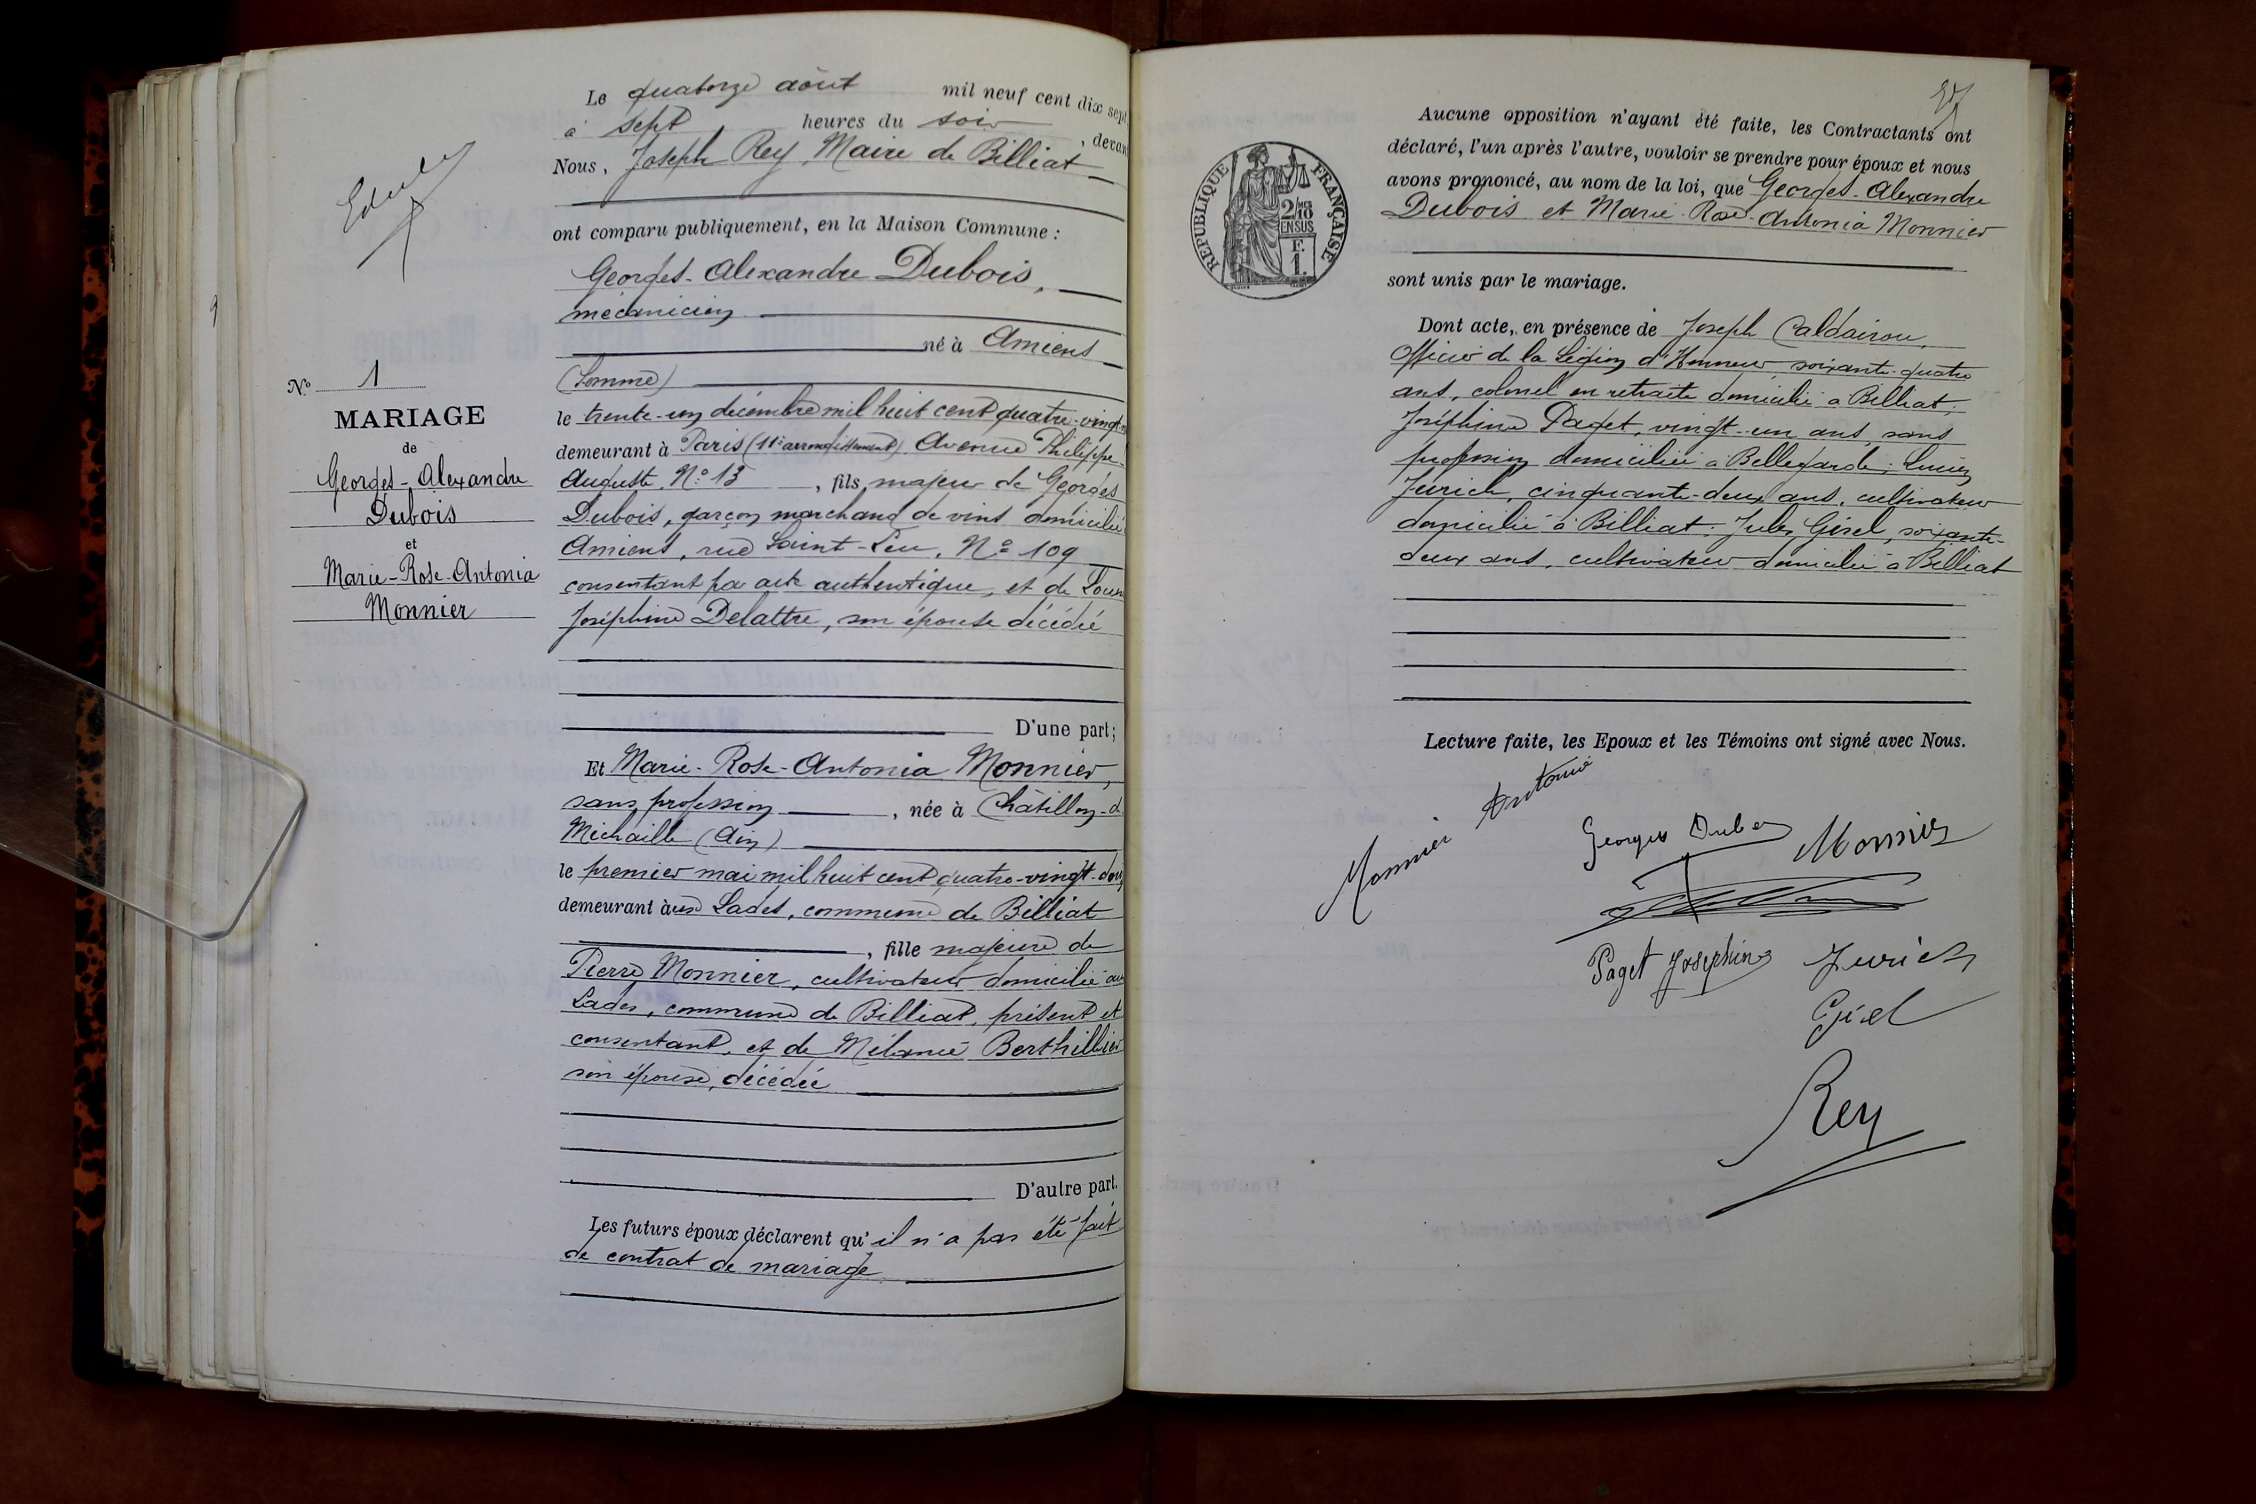 Le quatorze août mil neuf cent dix sept
à sept heures du soir, devant
Nous, Joseph Rey Maire de Billiat
ont comparu publiquement, en la Maison Commune :
Georges-Alexandre Dubois,
mécanicien
né à Amiens
(Somme)
le trente-un décembre mil huit cent quatre-vingt
demeurant à Paris (11e arrondissement) Avenue Philippe-
Auguste, No 13, fils majeur de Georges
Dubois, garçon marchand de vins domicilié
Amiens, rue Saint-Leu, No 109
consentant par acte authentique, et de
Joséphine Delattre, son épouse décédée
D'une part;
No 1
MARIAGE
de
Georges-Alexandre
Dubois
et
Marie-Rose-Antonia
Monnier
Et Marie-Rose-Antonia Monnier,
sans profession, née à Châtillon-de
Michaille (Ain)
le premier mai mil huit cent quatre-vingt-
demeurant aux Lades, commune de Billiat
, fille majeure de
Pierre Monnier, cultivateur domicilié aux
Lades, commune de Billiat, présent et
consentant, et de Mélanie Berthillier
son épouse, décédée
D'autre part.
Les futurs époux déclarent qu'il n'a pas été fait
de contrat de mariage
Aucune opposition n'ayant été faite, les Contractants ont
déclaré, l'un après l'autre, vouloir se prendre pour époux et nous
avons prononcé, au nom de la loi, que Georges-Alexandre
Dubois et Marie-Rose-Antonia Monnier
sont unis par le mariage.
RÉPUBLIQUE FRANÇAISE
2/10
EN SUS
F.
1.
Dont acte, en présence de Joseph Caldairou,
Officier de la Légion d'Honneur, soixante-quatre
ans, colonel en retraite domicilié à Billiat;
Joséphine Paget, vingt-un ans, sans
profession domiciliée à Bellegarde; Lucien
Jurich, cinquante-deux ans, cultivateur
domicilié à Billiat; Jules Girel, soixante-
deux ans, cultivateur domicilié à Billiat
Lecture faite, les Epoux et les Témoins ont signé avec Nous.
Monnier Antonia
Georges Dubois
Monnier
Paget Joséphine
Jurich
Girel
Rey